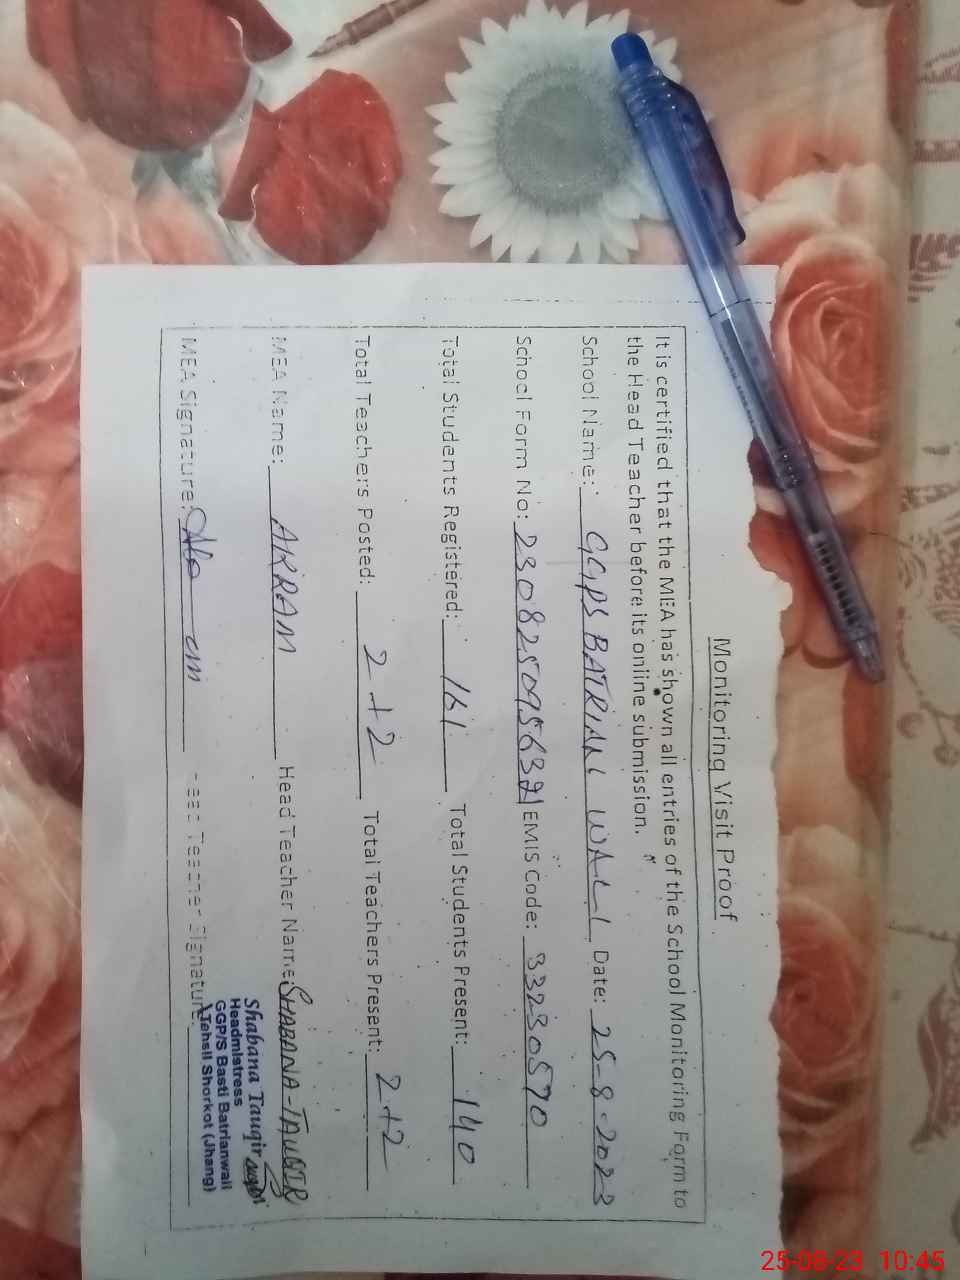 Monitoring Visit Proof
It is certified that the MEA has shown all entries of the School Monitoring Form to
the Head Teacher before its online submission.
School Name: GGPS BATRIAN WALI Date: 25-8-2023
School Form No: 23082509563 EMIS Code: 33230570
Total Students Registered: 161 Total Students Present: 140
Total Teachers Posted: 2+2 Total Teachers Present: 2+2
MEA Name: AKRAM Head Teacher Name: SHABANA-TAUQIR
MEA Signature: Head Teacher Signature:
Shabana Tauqir
Headmistress
GGP/S Basti Batrianwali
Tehsil Shorkot (Jhang)
25-08-23 10:45